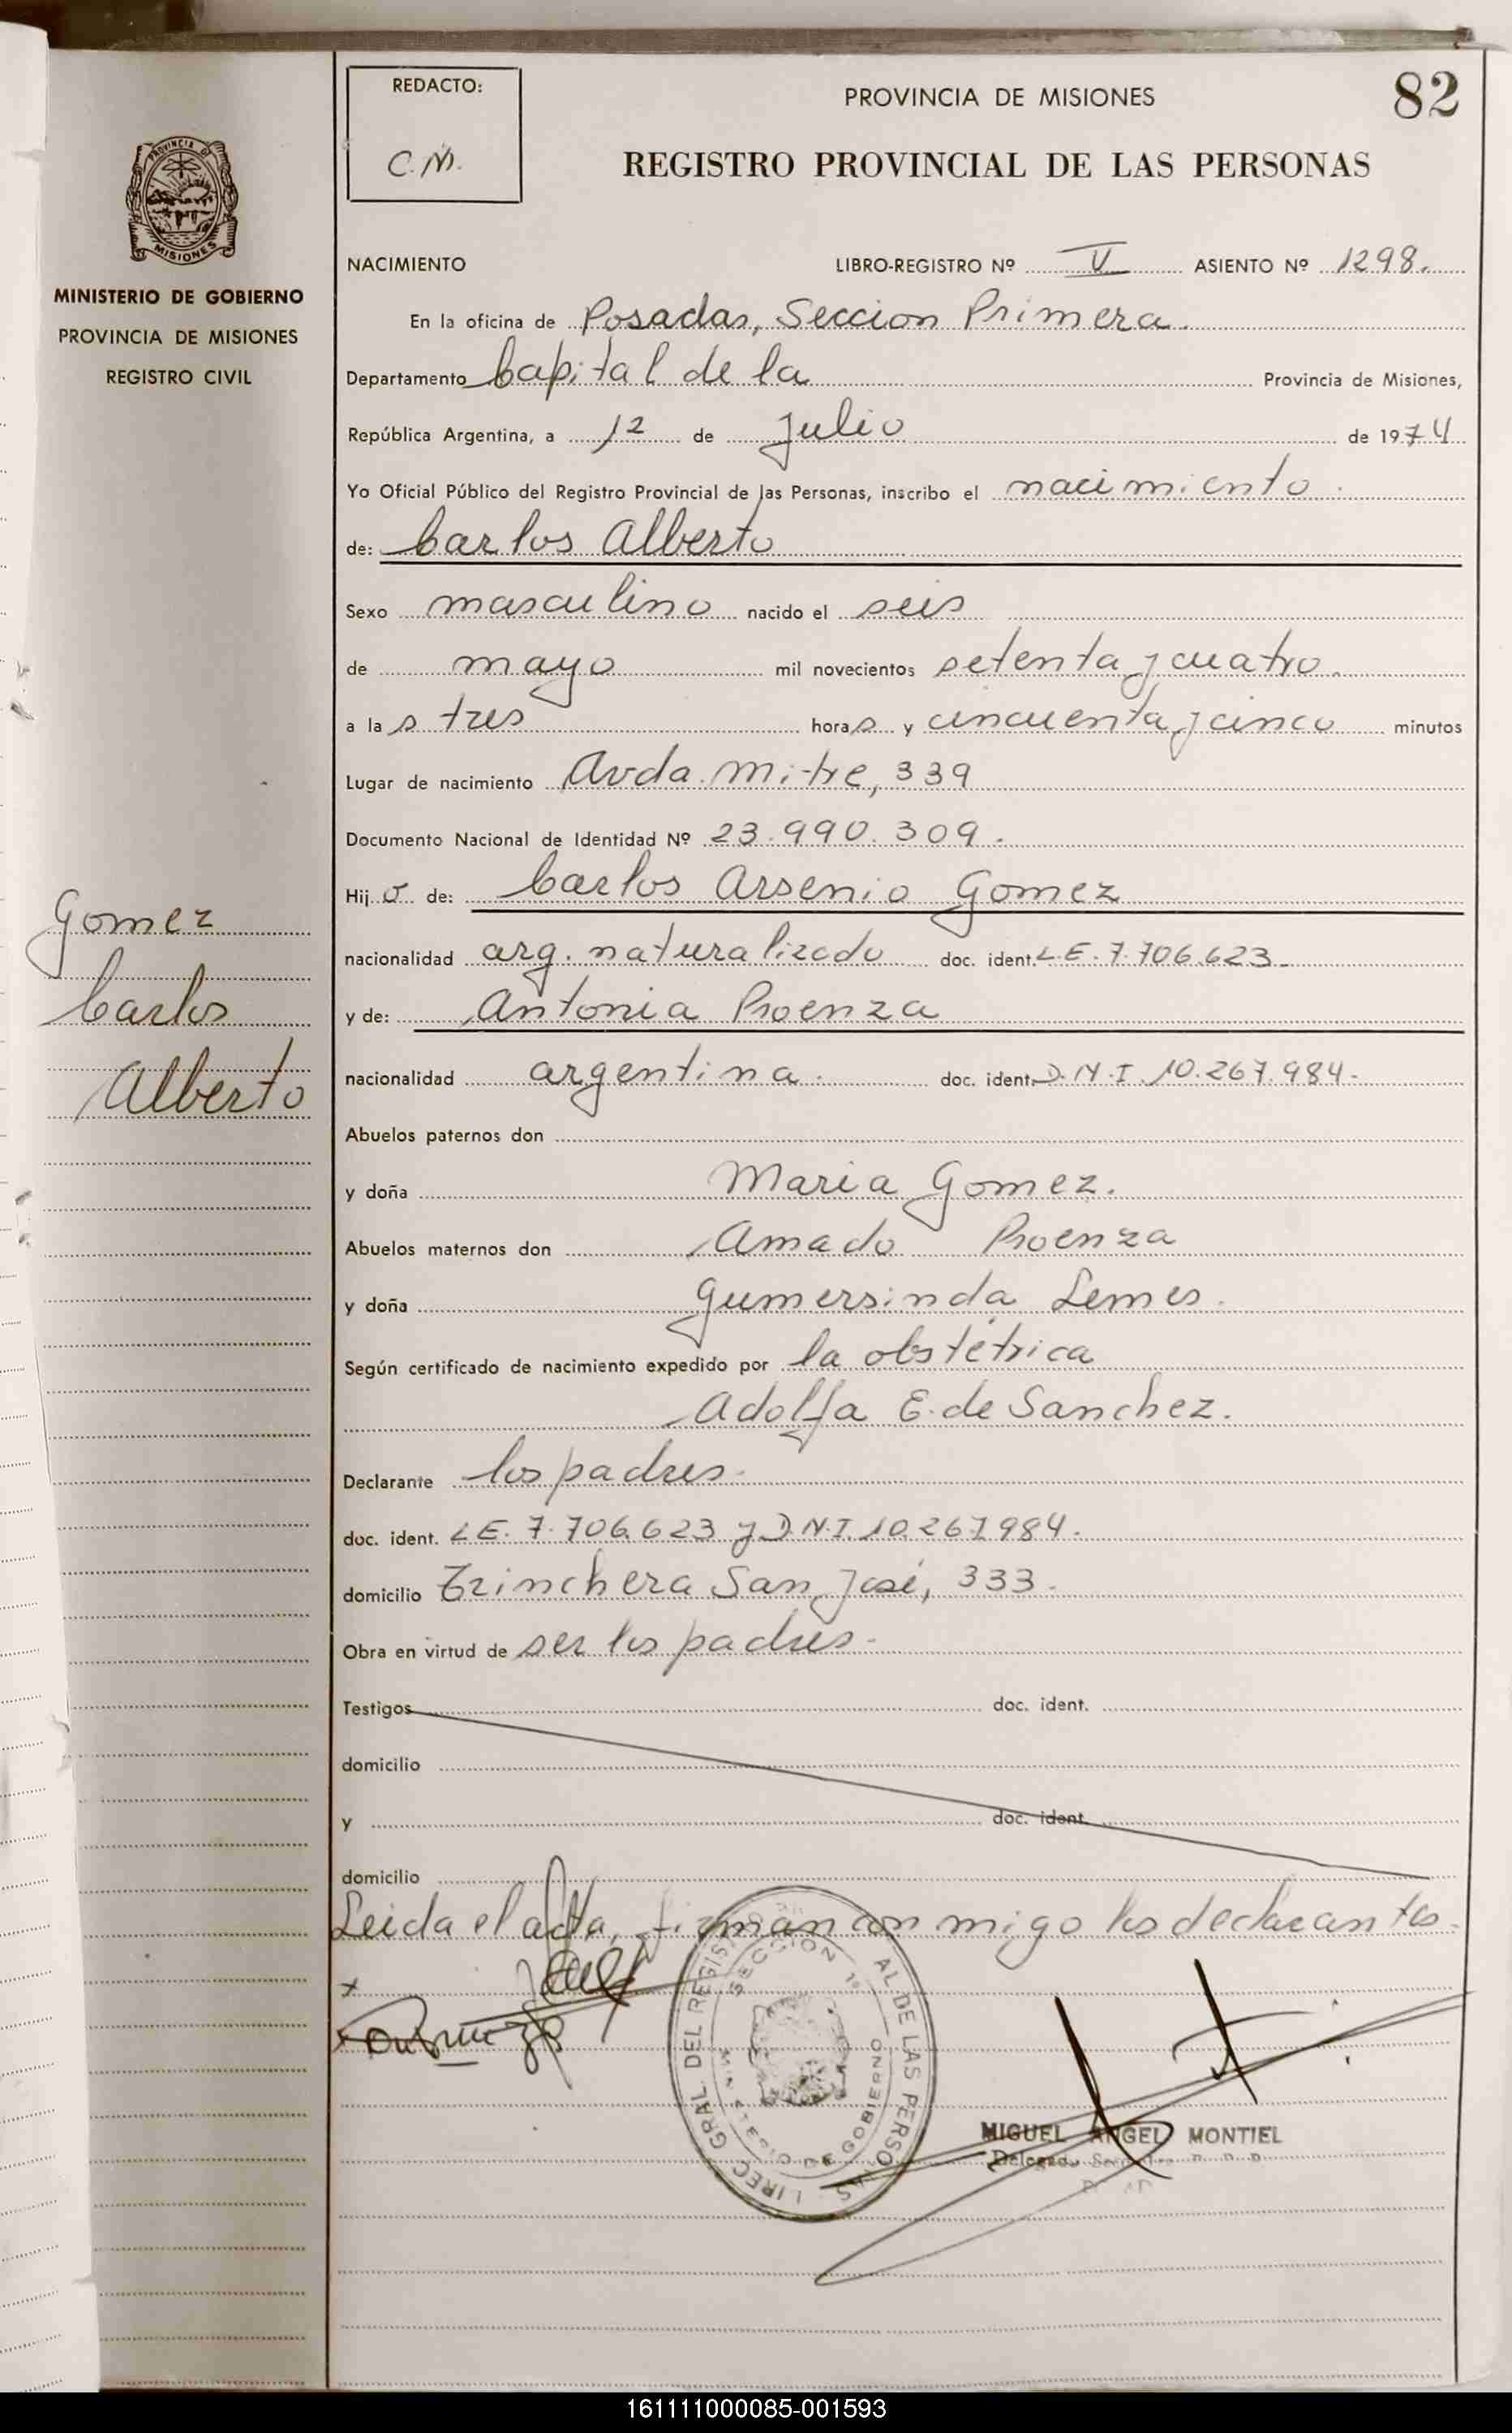 REDACTO:
C.M.
PROVINCIA DE MISIONES
82
REGISTRO PROVINCIAL DE LAS PERSONAS
PROVINCIA DE
MISIONES
MINISTERIO DE GOBIERNO
PROVINCIA DE MISIONES
REGISTRO CIVIL
Gomez
Carlos
Alberto
NACIMIENTO LIBRO-REGISTRO Nº V ASIENTO Nº 1298.
En la oficina de Posadas, Seccion Primera.
Departamento Capital de la Provincia de Misiones,
República Argentina, a 12 de Julio de 1974
Yo Oficial Público del Registro Provincial de las Personas, inscribo el nacimiento.
de: Carlos Alberto
Sexo masculino nacido el seis
de mayo mil novecientos setenta y cuatro.
a las tres horas y cincuenta y cinco minutos
Lugar de nacimiento Avda. mitre, 339
Documento Nacional de Identidad Nº 23.990.309.
Hijo de: Carlos Arsenio Gomez
nacionalidad arg. naturalizado doc. ident. L.E. 7.706.623.
y de: Antonia Proenza
nacionalidad argentina. doc. ident. D.N.I. 10.267.984.
Abuelos paternos don
y doña Maria Gomez.
Abuelos maternos don Amado Proenza
y doña Gumersinda Lemes.
Según certificado de nacimiento expedido por la obstétrica
Adolfa E. de Sanchez.
Declarante los padres.
doc. ident. L.E. 7.706.623 y D.N.I. 10.267.984.
domicilio Trinchera San José, 333.
Obra en virtud de ser los padres.
Testigos doc. ident.
domicilio
y doc. ident.
domicilio
Leida el acta, firman con migo los declarantes.
SECCION 1ª
DE LAS PERSONAS
GRAL DEL REGIST
DE GOBIERNO
MIGUEL ANGEL MONTIEL
Delegado
161111000085-001593